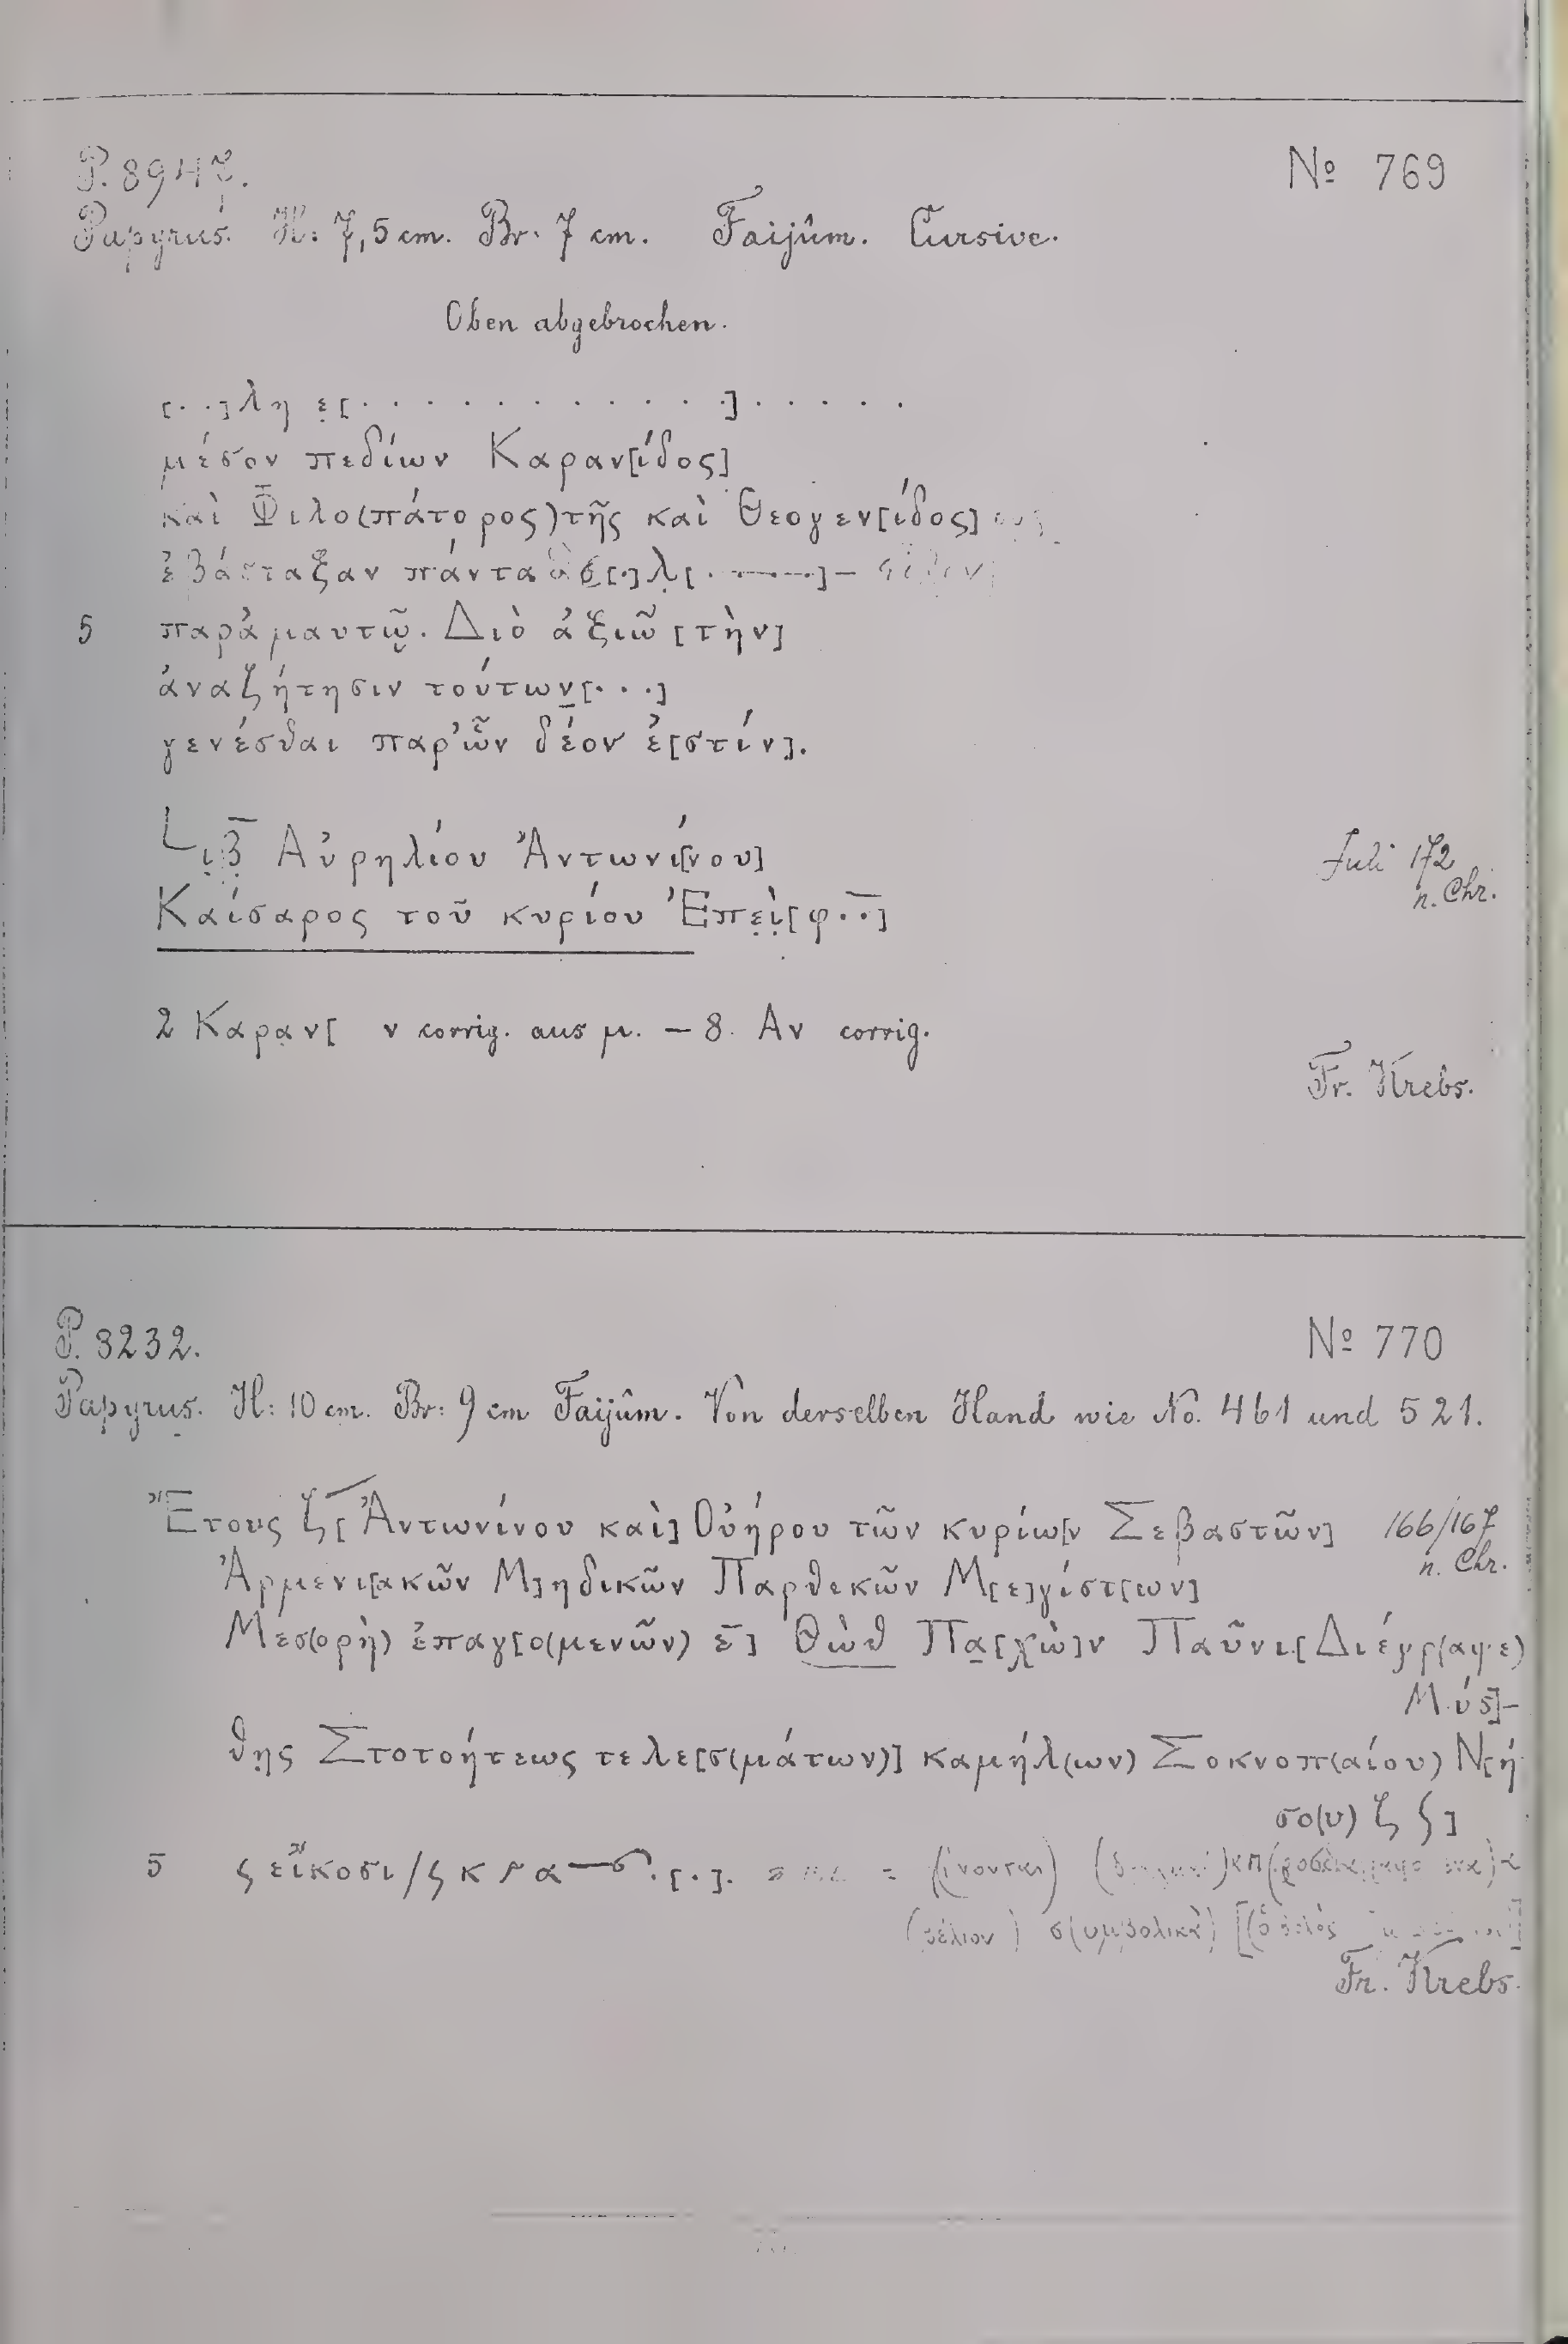 P. 8947.
№ 769
Papyrus. H: 7,5 cm. Br: 7 cm. Faijûm. Cursive.
Oben abgebrochen.
[· ·]λη ε̣[· · · · · · · · · · · ·] · · · · ·
μέσον πεδίων Καραν[ίδος]
καὶ Φιλο(πάτορος) τῆς καὶ Θεογεν[ίδος]
ἐβάσταξαν πάντα
5 παρ' ἀμαυτῷ. Διὸ ἀξιῶ [τὴν]
ἀναζήτησιν τούτων [· · ·]
γενέσθαι παρ' ὧν δέον ἐ[στίν].
L ι̣β̣̅ Αὐρηλίου Ἀντωνί[νου]
Juli 172
n. Chr.
Καίσαρος τοῦ κυρίου Ἐπε̣ὶ̣[φ · ·]
2 Καρα̣ν[ ν corrig. aus μ. – 8. Αν corrig.
Fr. Krebs.
P. 8232.
№ 770
Papyrus. H: 10 cm. Br: 9 cm Faijûm. Von derselben Hand wie No. 461 und 521.
Ἔτους ζ̅[ Ἀντωνίνου καὶ] Οὐήρου τῶν κυρίω[ν Σεβαστῶν]
166/167
n. Chr.
Ἀρμενι[ακῶν Μ]ηδικῶν Παρθεκῶν Μ[ε]γίστ[ων]
Μεσ(ορὴ) ἐπαγ[ο(μενῶν) ε̅] Θὼθ Πα̣[χὼ]ν Παῦνι[Διέγρ(αψε)
Μύσ]–
θη̣ς Στοτοήτεως τελε[σ(μάτων)] καμήλ(ων) Σοκνοπ(αίου) Ν[ή
σο(υ) ζ ʃ]
5 ς εἴκοσι / ς κ
Fr. Krebs.